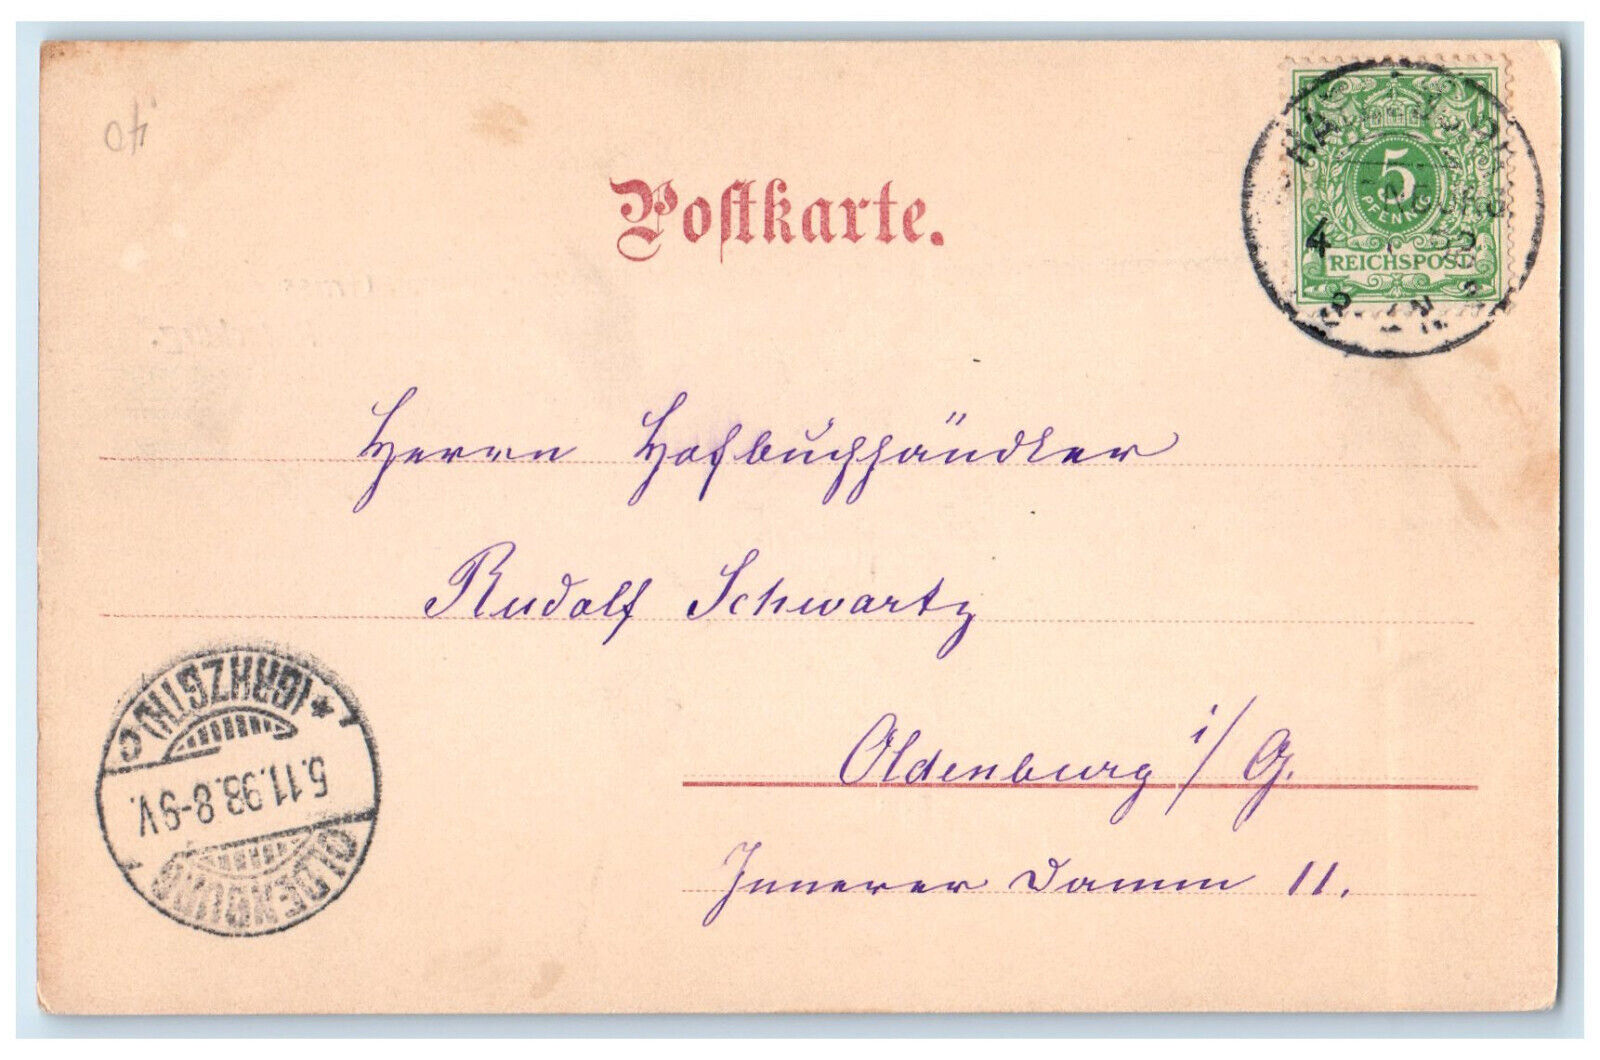 40
Postkarte.
5
PFENNIG
REICHSPOST
4
Herrn Hofbuchhändler
Rudolf Schwartz
Oldenburg i/G.
Innerer Damm 11.
OLDENBURG
5.11.98.8-9V.
* 1GRHZGTHU c